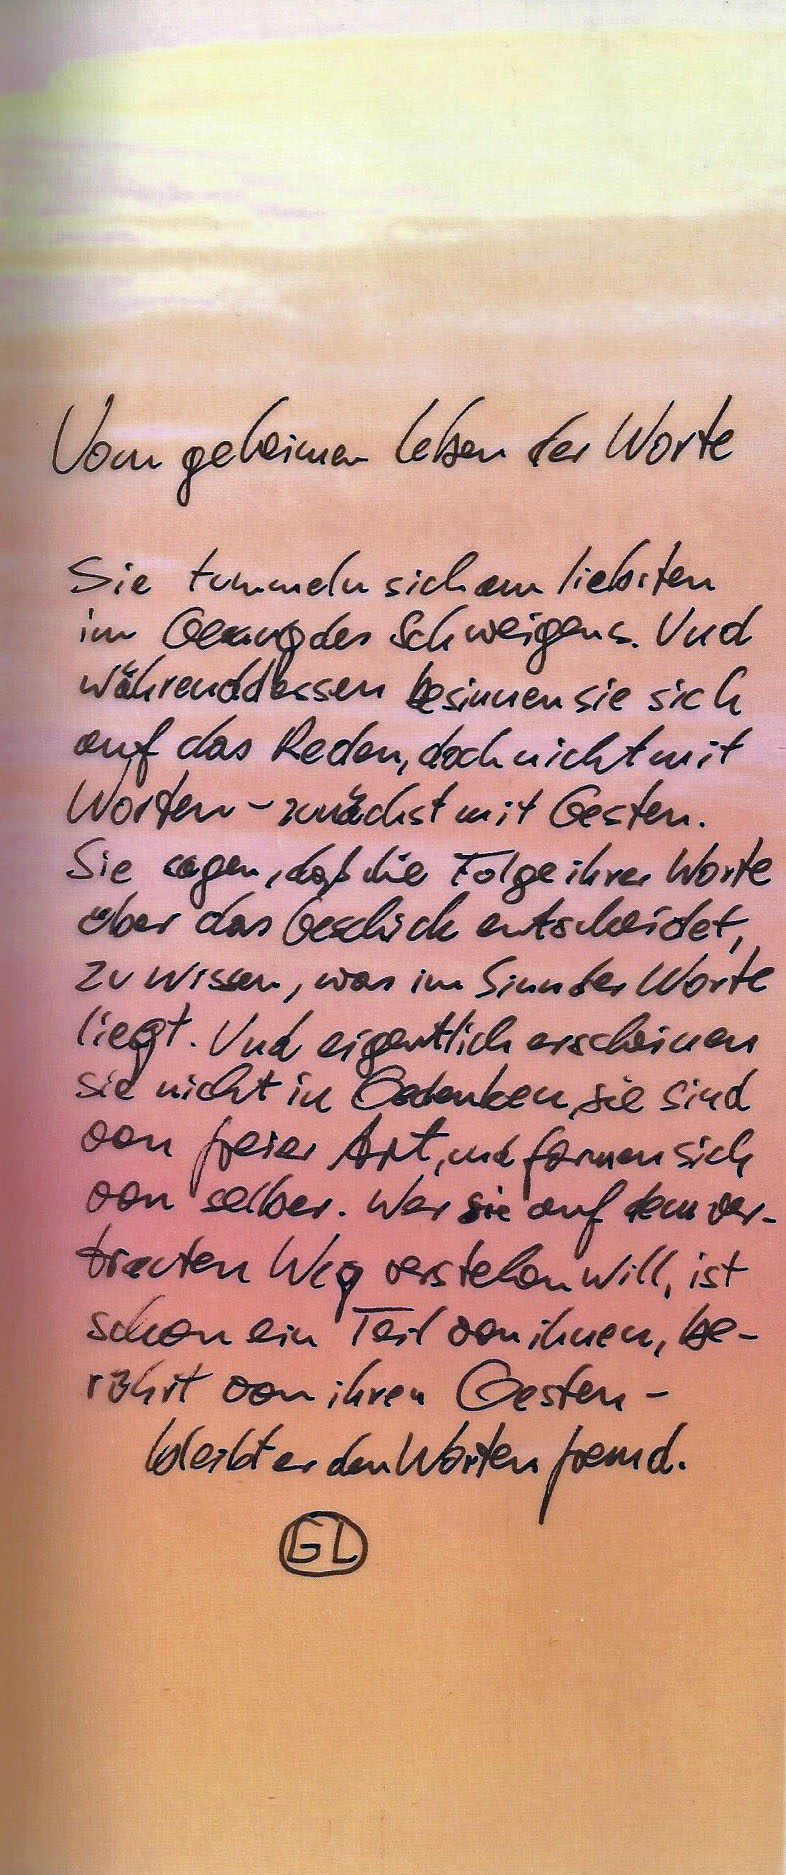 Vom geheimen Leben der Worte
Sie tummeln sich am liebsten
im Gesang des Schweigens. Und
währenddessen besinnen sie sich
auf das Reden, doch nicht mit
Worten – zunächst mit Gesten.
Sie sagen, daß die Folge ihrer Worte
über das Geschick entscheidet,
zu wissen, was im Sinn der Worte
liegt. Und eigentlich erscheinen
sie nicht in Gedanken, sie sind
von freier Art, und formen sich
von selber. Wer sie auf dem ver-
trauten Weg verstehen will, ist
schon ein Teil von ihnen, be-
rührt von ihren Gesten –
bleibt er den Worten fremd.
GL